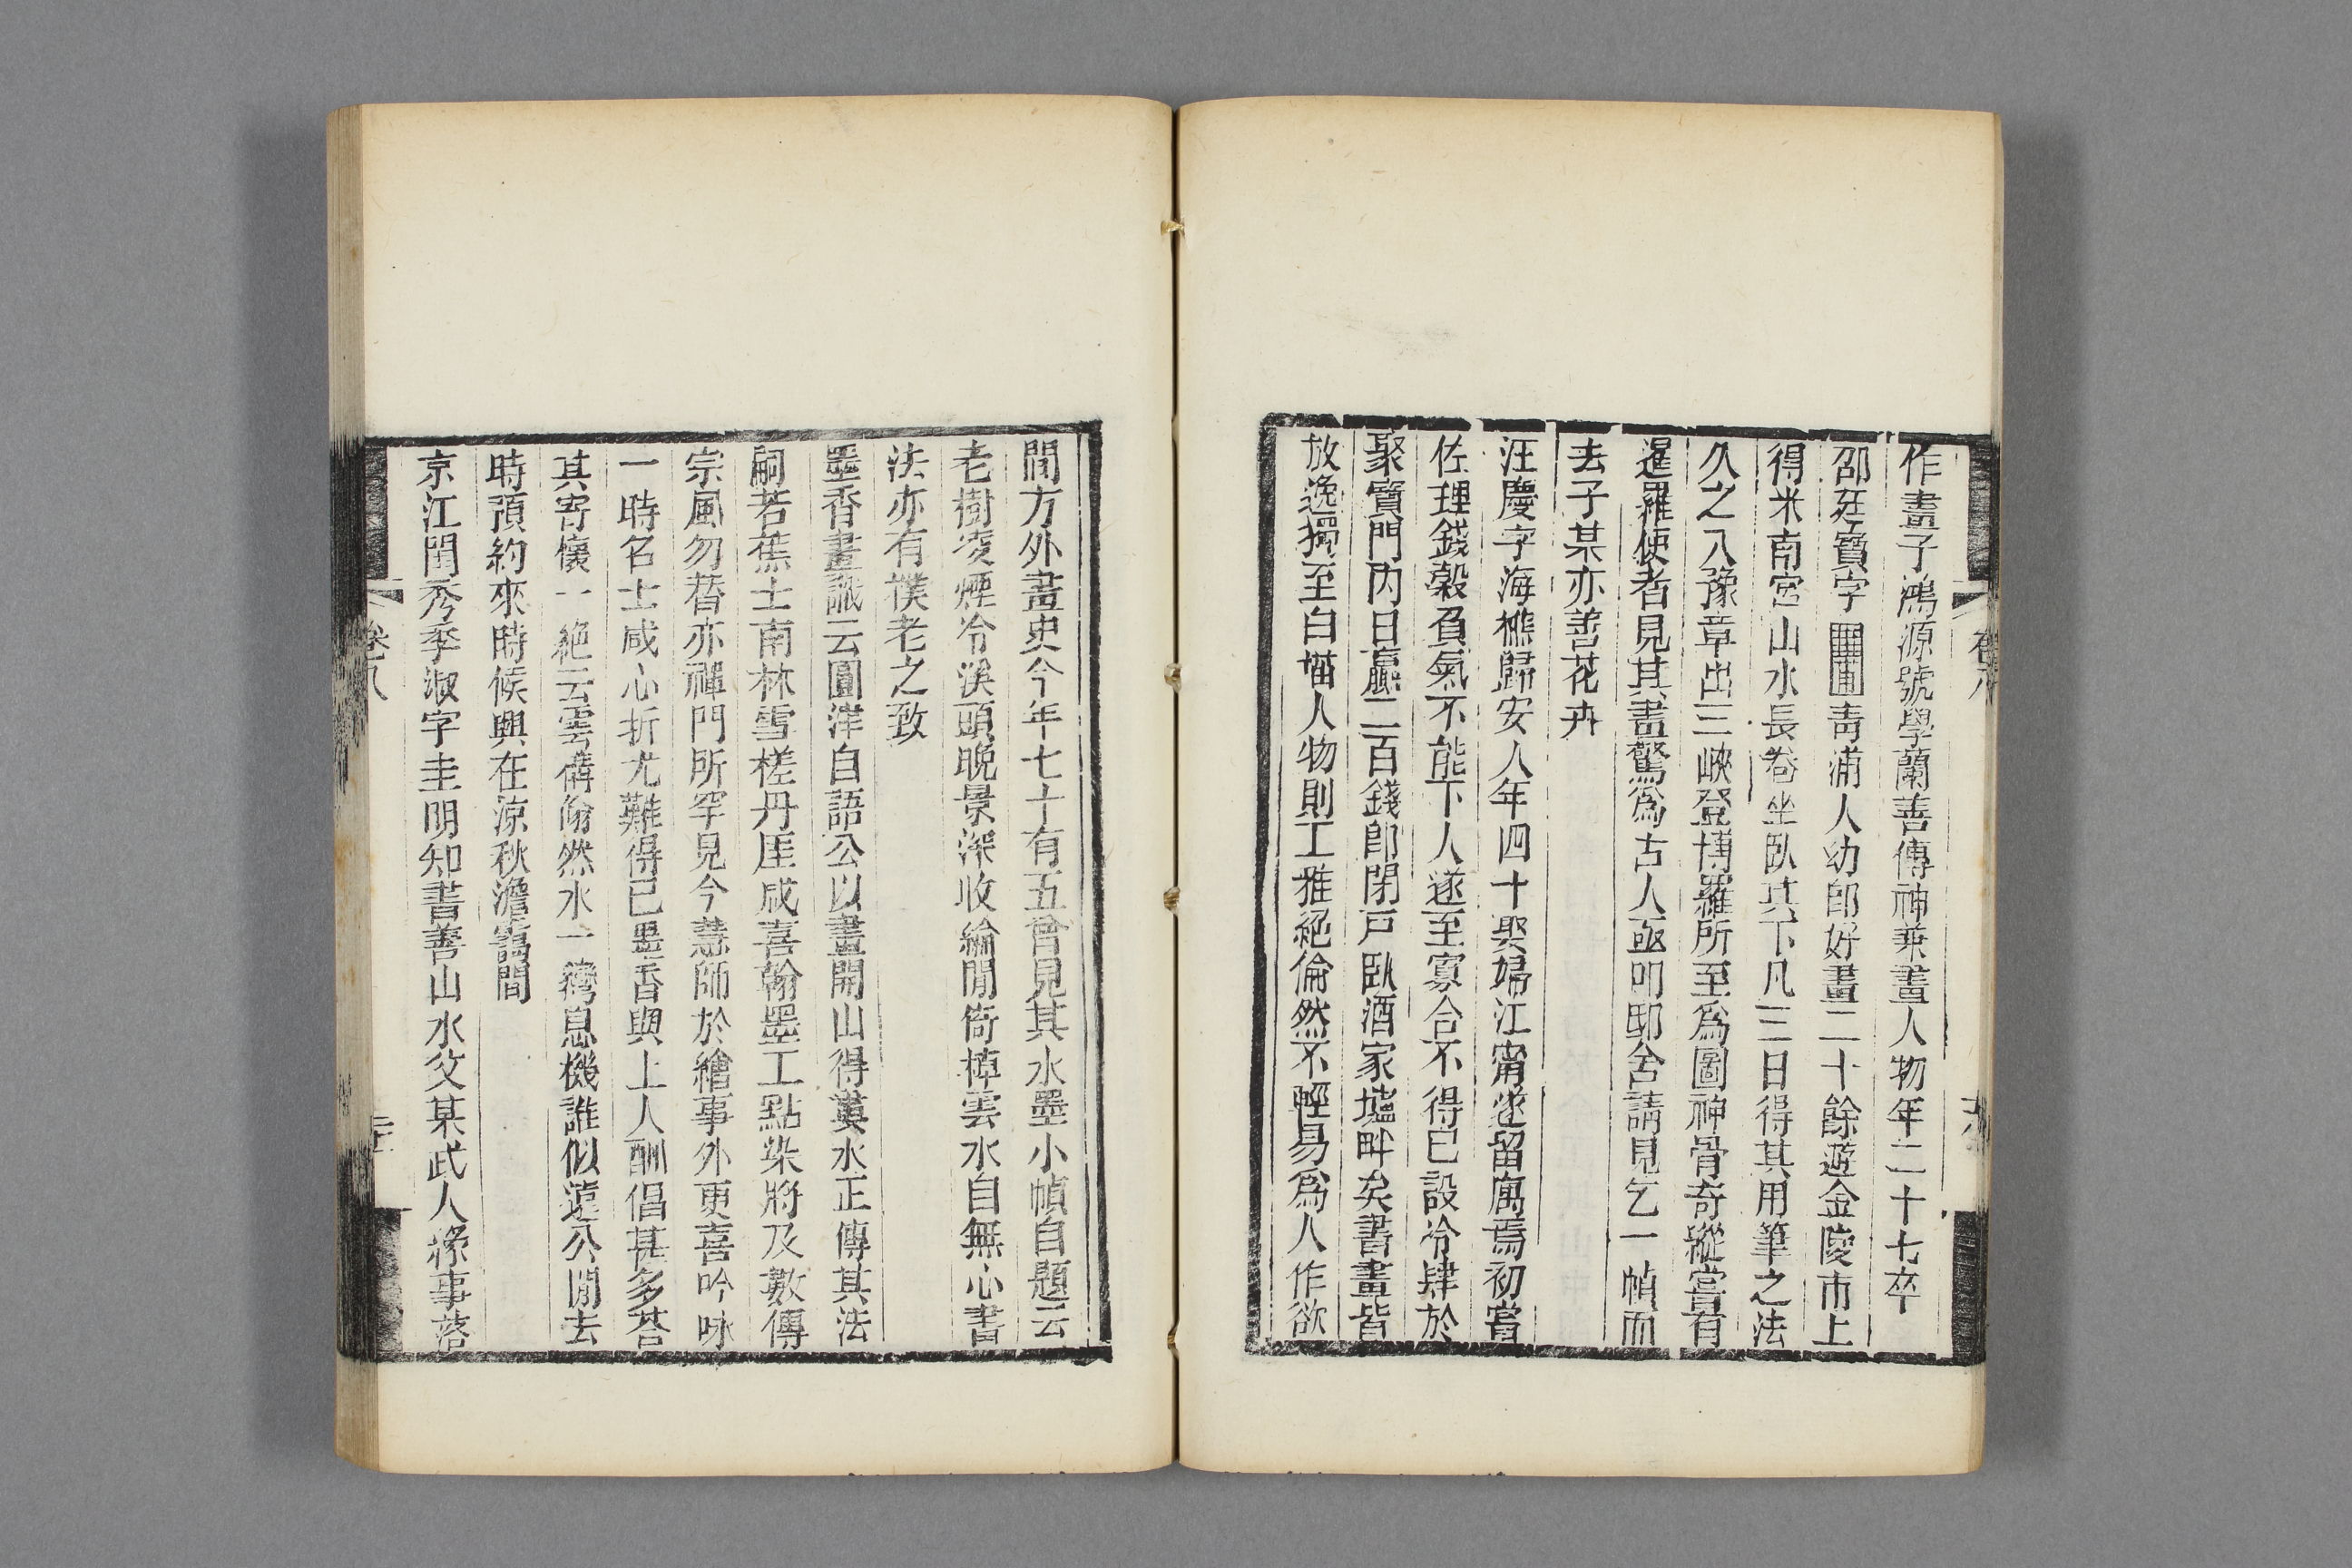 作畫子鴻源號學蘭善傳神兼畫人物年二十七卒
邵廷寶字囲圃青浦人幼卽好畫二十餘遊金陵市上
得米南宮山水長卷坐臥其下凡三日得其用筆之法
久之入豫章出三峽登博羅所至爲圖神骨奇縱嘗有
暹羅使者見其畫驚爲古人亟叩邸舍請見乞一幀而
去子某亦善花卉
汪慶字海樵歸安人年四十娶婦江甯遂留寓焉初嘗
佐理錢穀負氣不能下人遂至寡合不得已設冷肆於
聚寶門內日贏二百錢卽閉戸臥酒家壚畔矣書畫皆
放逸獨至白描人物則工雅絕倫然不輕易爲人作欲
卷八
閒方外畫史今年七十有五曾見其水墨小幀自題云
老樹凌煙冷溪頭晚景深收綸閒倚棹雲水自無心書
法亦有襆老之致
墨香畫識云圓洋自語公以畫開山得蓂水正傳其法
嗣若蕉士南林雪槎丹厓咸喜翰墨工點染將及數傳
宗風勿替亦禪門所罕見今慧師於繪事外更喜吟咏
一時名士咸心折尤難得已墨香與上人酬倡甚多荅
其寄懷一絕云雲備翛然水一灣息機誰似遠公閒去
時預約來時候興在涼秋澹靄間
京江閨秀季淑字圭明知書善山水父某武人緣事落
卷八